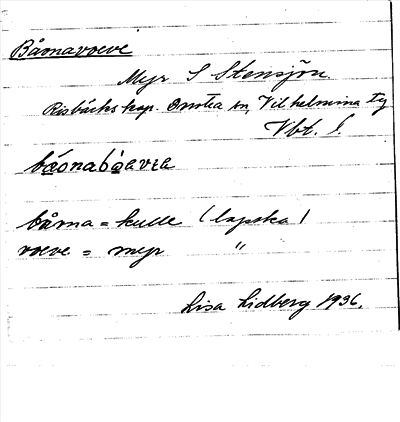 Båønavoeve
Myr S Stensjön.
Risbäcks kap. Dorotea sn, Vilhelmina tg
Vbt. l.
båønabǫavεa
båøna = kulle (lapska)
voeve = myr "
Lisa Lidberg 1936.